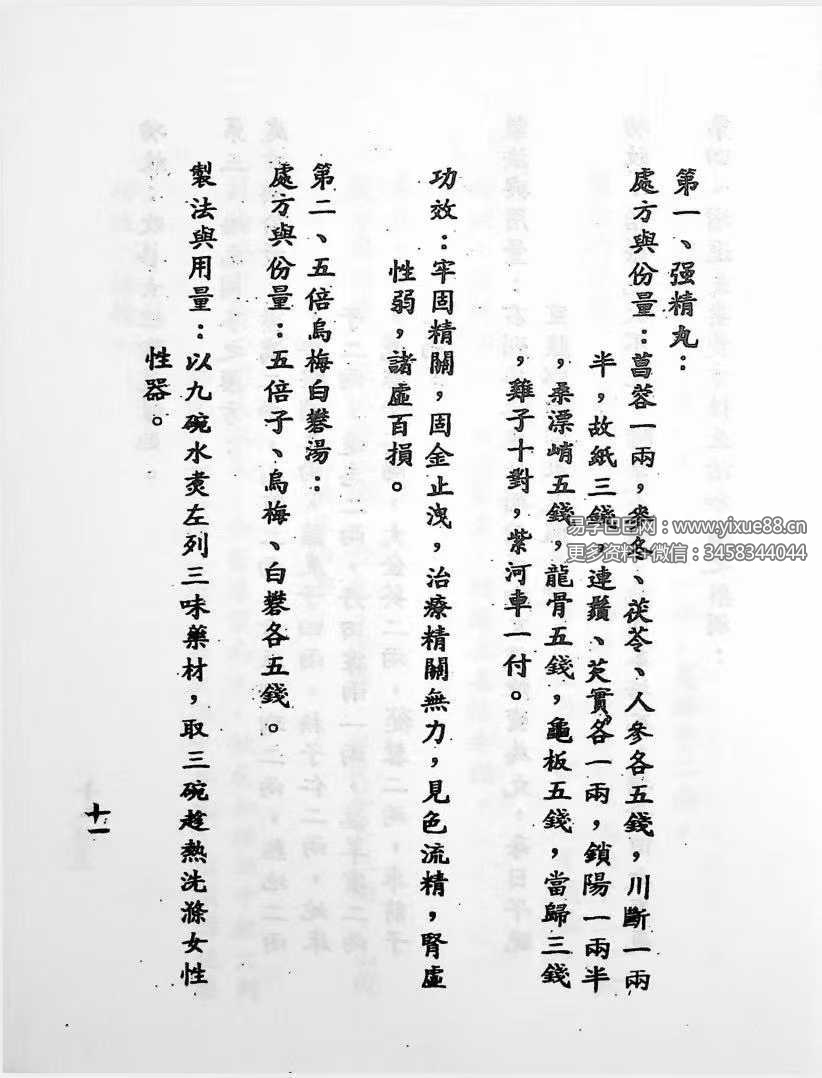 第一、强精丸：
處方與份量：菖蓉一兩，麥冬、茯苓、人參各五錢，川斷一兩
半，故紙三錢，連鬚、芡實各一兩，鎖陽一兩半
，桑漂峭五錢，龍骨五錢，龜板五錢，當歸三錢
，雞子十對，紫河車一付。
功效：牢固精關，固金止洩，治療精關無力，見色流精，腎虛
性弱，諸虛百損。
第二、五倍烏梅白礬湯：
處方與份量：五倍子、烏梅、白礬各五錢。
製法與用量：以九碗水煑左列三味藥材，取三碗趁熱洗滌女性
性器。
十一
易学巴巴网：www.yixue88.cn
更多资料+微信：3458344044